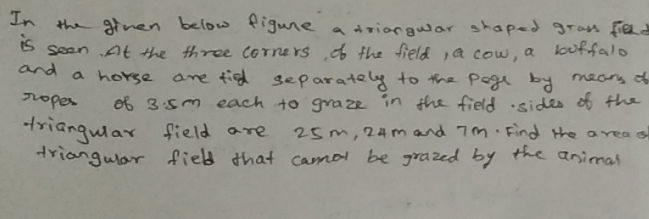 In the given below figure a triangular shaped grass field
is seen. At the three corners, of the field, a cow, a buffalo
and a horse are tied separately to the pegs by means of
ropes of 3.5m each to graze in the field. sides of the
triangular field are 25m, 24m and 7m. Find the area of
triangular field that cannot be grazed by the animal